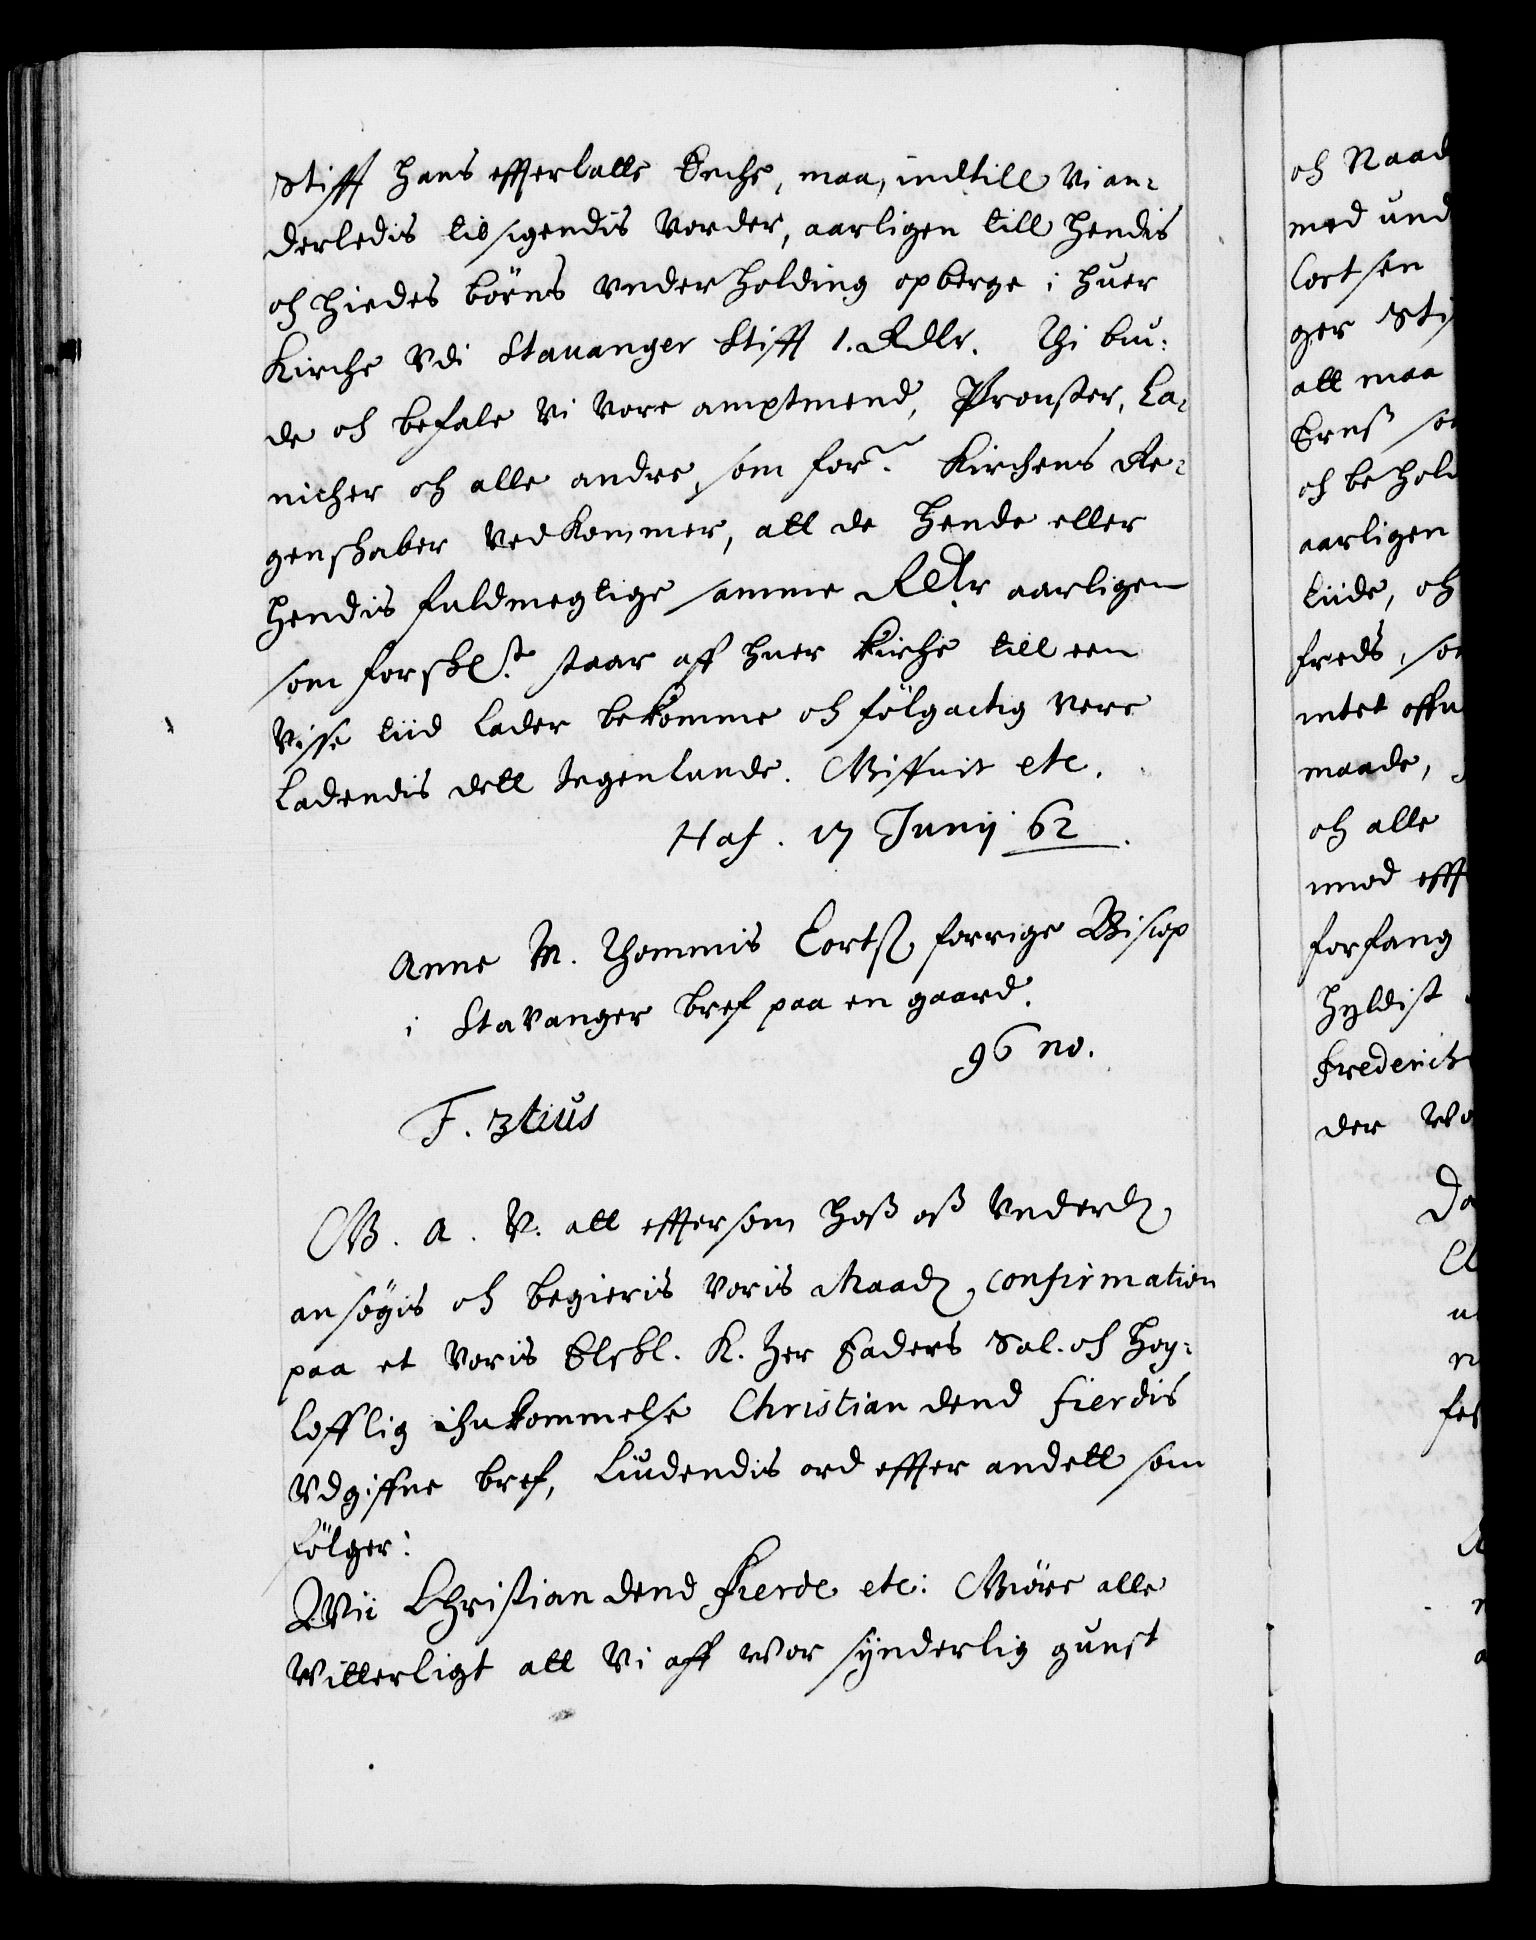 Stifft hans effterlatte Encke, maa, indtill Vi an¬
derledis tilsigendis vorder, aarligen till hendis
och hindes börns underholding opberge i huer
Kirche Vdi Stavanger Stifft 1. Rdlr. Thi biu¬
de och befale Vi Vore amptmend, Prouster, Ca¬
nicker och alle andre, som for.ne Kirchens Re¬
genskaber vedkommer, att de hende eller
hendis fuldmegtige samme Rdlr aarligen
som forskt. staar aff huer kirche till een
visse tiid lader bekomme och fölgactig vere
Ladendis dett ingenlunde. Giffuit etc.
Haf. 17 Junij 62.
Anne M. Thommis Cortß. forrige Biscop
i Stavanger bref paa en gaard.
96 no.
F. 3tius
G. A. V. att effter som hoß oß underd.
ansögis och begieris voris Naad. confirmation
paa et voris Elskl. K. Her Faders Sal. och Høy¬
lofflig ihukommelse Christian dend fierdis
Vdgiffne bref, Liudendis ord effter andett som
fölger:
Wii Christian dend Fierde etc: Giöre alle
Witterligt att Vi aff vor synderlig gunst
och Naad
med und
Cortsen
ger Sti
att maa
och behold
aarligen
tiide, och
freds, so
maade,
och alle
imod efft
forfang
hyldist
Frederich
der Wo